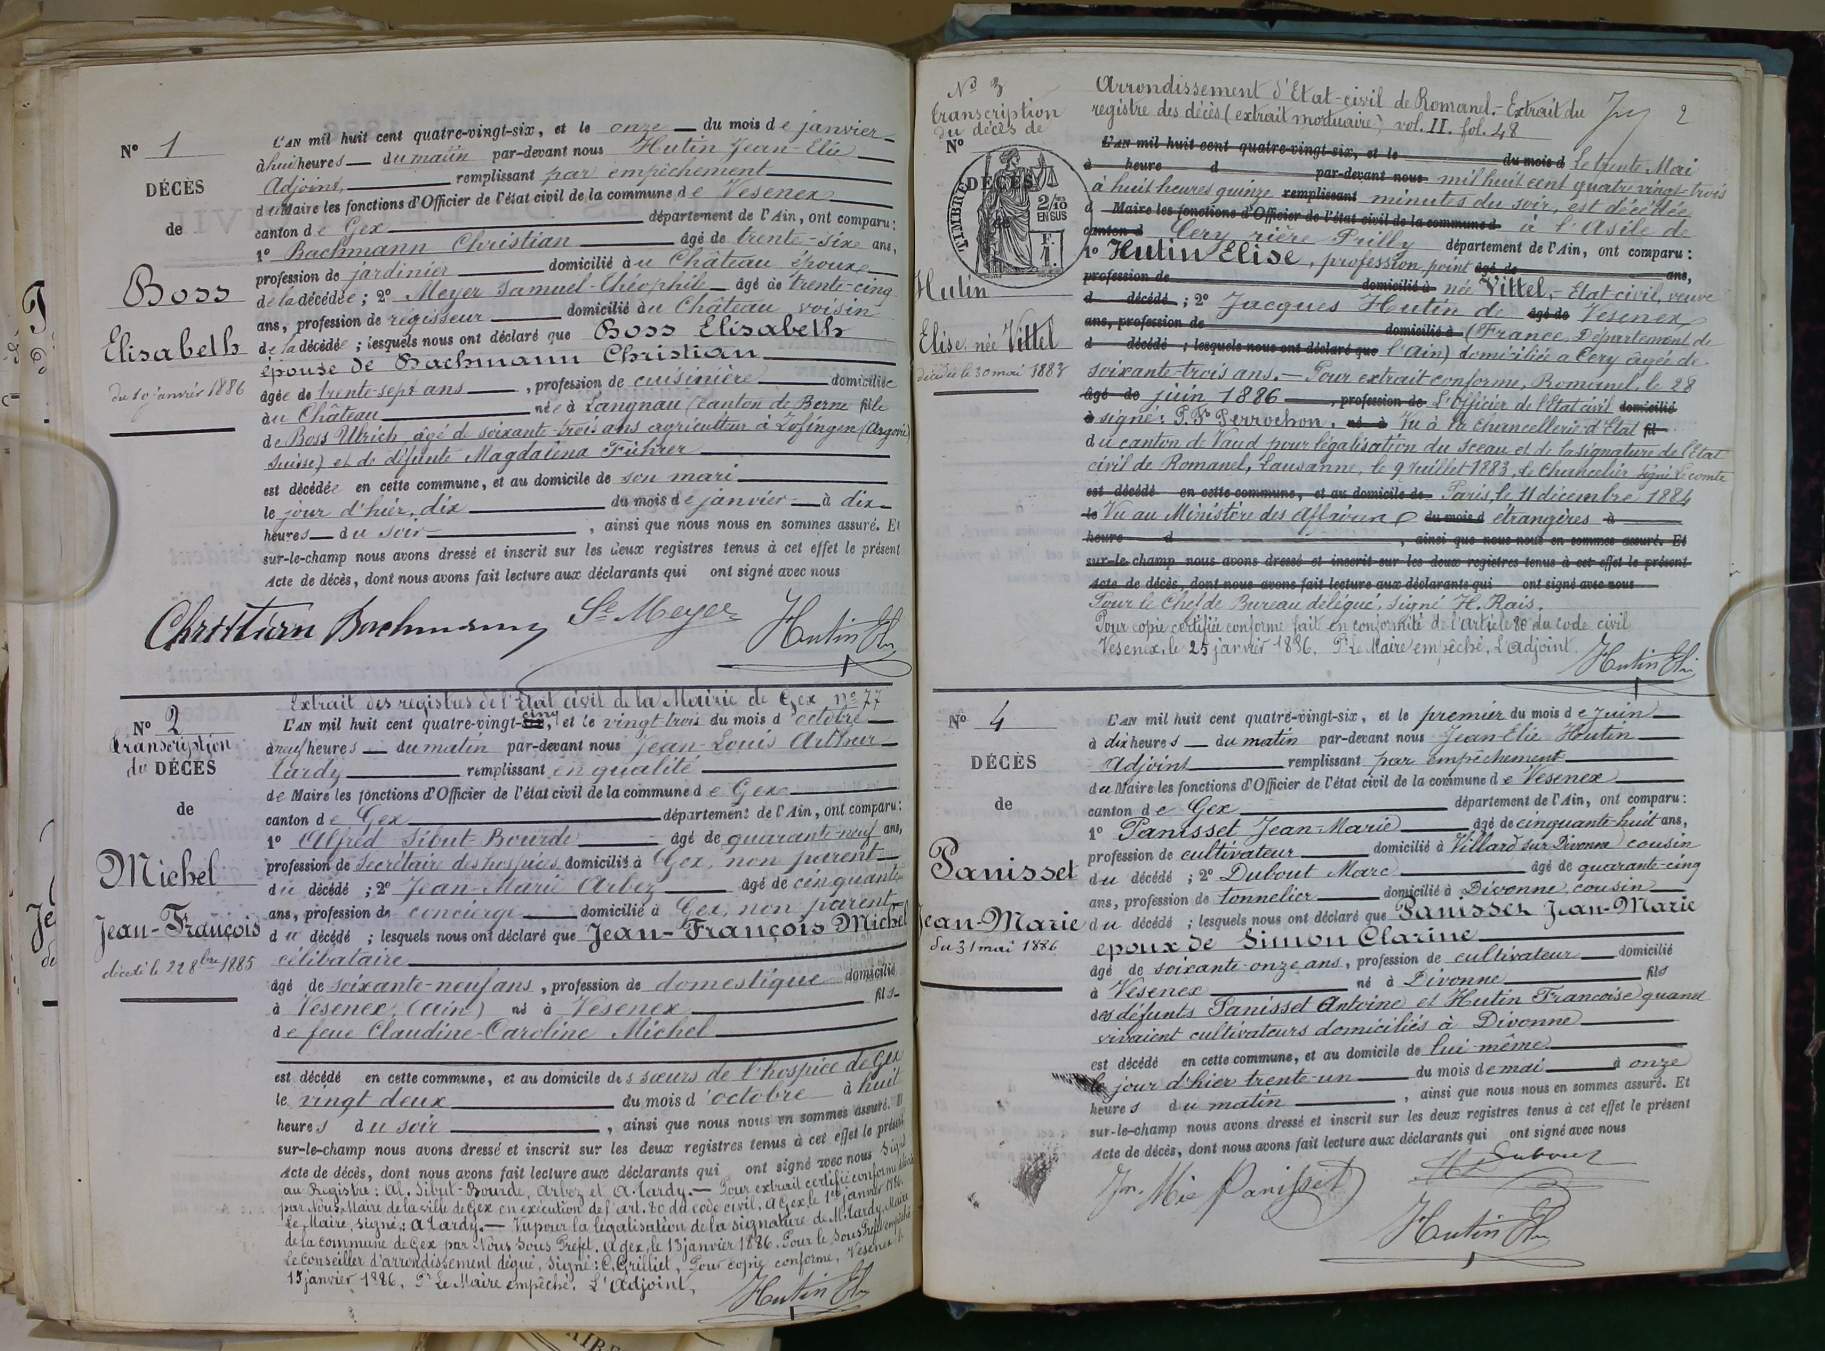 N° 1
DÉCÈS
de
Boss
Elisabeth
du 10 janvier 1886
L'AN mil huit cent quatre-vingt-six, et le onze du mois de janvier
à huit heures du matin par-devant nous Hutin Jean-Elie
Adjoint, remplissant par empêchement
du Maire les fonctions d'Officier de l'état civil de la commune de Vesenex
canton de Gex département de l'Ain, ont comparu :
1° Bachmann Christian âgé de trente-six ans,
profession de jardinier domicilié au Château époux
de la décédée ; 2° Meyer Samuel-Théophile âgé de trente-cinq
ans, profession de régisseur domicilié au Château voisin
de la décédée ; lesquels nous ont déclaré que Boss Elisabeth
épouse de Bachmann Christian
âgée de trente-sept ans, profession de cuisinière domiciliée
au Château née à Langnau (Canton de Berne fille
de Boss Ulrich, âgé de soixante-trois ans agriculteur à Zofingen (Argovie
Suisse) et de défunte Magdalena Führer
est décédée en cette commune, et au domicile de son mari
le jour d'hier, dix du mois de janvier à dix
heures du soir, ainsi que nous nous en sommes assuré. Et
sur-le-champ nous avons dressé et inscrit sur les deux registres tenus à cet effet le présent
Acte de décès, dont nous avons fait lecture aux déclarants qui ont signé avec nous
Christian Bachmann Sl Meyer Hutin Eli
Extrait des registres de l'Etat civil de la Mairie de Gex n° 77
N° 2
transcription
du DÉCÈS
de
Michel
Jean-François
décédé le 22 8bre 1885
L'AN mil huit cent quatre-vingt-six, cinq et le vingt-trois du mois d'octobre
à neuf heures du matin par-devant nous Jean-Louis Arthur
Tardy remplissant en qualité
de Maire les fonctions d'Officier de l'état civil de la commune de Gex
canton de Gex département de l'Ain, ont comparu :
1° Alfred Sibut-Bourde âgé de quarante-neuf ans,
profession de secrétaire des hospices domicilié à Gex, non parent
du décédé ; 2° Jean-Marie Arbez âgé de cinquante
ans, profession de concierge domicilié à Gex, non parent
du décédé ; lesquels nous ont déclaré que Jean-François Michel
célibataire
âgé de soixante-neuf ans, profession de domestique domicilié
à Vesenex, (Ain) né à Vesenex fils
de feue Claudine-Caroline Michel
est décédé en cette commune, et au domicile des sœurs de l'hospice de Gex
le vingt deux du mois d'octobre à huit
heures du soir, ainsi que nous nous en sommes assuré. Et
sur-le-champ nous avons dressé et inscrit sur les deux registres tenus à cet effet le présent
Acte de décès, dont nous avons fait lecture aux déclarants qui ont signé avec nous Signé
au Registre : Al. Sibut-Bourde, Arbez et A. Tardy.— Pour extrait certifié conforme
par Nous, Maire de la ville de Gex en exécution de l'art. 80 du code civil. A Gex le janvier 1886.
Le Maire, signé : A Tardy.— Vu pour la légalisation de la signature de M. Tardy, Maire
de la commune de Gex par Nous Sous Préfet. A Gex, le 13 janvier 1886. Pour le Sous Préfet empêché
Le Conseiller d'arrondissement délégué, Signé : C. Grilliet, Pour copie conforme, Vesenex le
15 janvier 1886. Pr Le Maire empêché. L'Adjoint,
Hutin Eli
2
N° 3
transcription
du décès de
N°
DÉCÈS
TIMBRE
2/10
EN SUS
F.
1.
Hutin
Elise, née Vittel
décédée le 30 mai 1883
Arrondissement d'Etat-civil de Romanel.- Extrait du
registre des décès (extrait mortuaire), vol. II. fol. 48
L'AN mil huit cent quatre-vingt-six, et le du mois d le trente Mai
à heure d par-devant nous mil huit cent quatre vingt-trois
à huit heures quinze remplissant minutes du soir, est décédée
d Maire les fonctions d'Officier de l'état civil de la commune d à l'Asile de
canton d Cery rière Prilly département de l'Ain, ont comparu :
1° Hutin Elise, profession point âgé de ans,
profession de domicilié à née Vittel,- Etat civil, veuve
d décédé ; 2° Jacques Hutin de âgé de Vesenex
ans, profession de domicilié à (France, Département de
d décédé ; lesquels nous ont déclaré que l'Ain) domiciliée à Cery âgée de
soixante-trois ans.— Pour extrait conforme, Romanel, le 28
âgé de juin 1886, profession de L'Officier de l'Etat civil domicilié
à signé : P. Ns Perrochon. né à Vu à la Chancellerie d'Etat fil
du canton de Vaud pour légalisation du Sceau et de la signature de l'Etat
civil de Romanel, Lausanne, le 9 Juillet 1883. Le Chancelier signé Lecomte
est décédé en cette commune, et au domicile de Paris, le 11 décembre 1884
le Vu au Ministère des Affaires du mois d étrangères à
heure d, ainsi que nous nous en sommes assuré. Et
sur-le-champ nous avons dressé et inscrit sur les deux registres tenus à cet effet le présent
Acte de décès, dont nous avons fait lecture aux déclarants qui ont signé avec nous
Pour le Chef de Bureau délégué. Signé H. Rais.
Pour copie certifiée conforme fait en conformité de l'Article 80 du code civil
Vesenex, le 25 janvier 1886. Pr Le Maire empêché, L'Adjoint.
Hutin Eli
N° 4
DÉCÈS
de
Panisset
Jean-Marie
du 31 mai 1886
L'AN mil huit cent quatre-vingt-six, et le premier du mois de juin
à dix heures du matin par-devant nous Jean Elie Hutin
Adjoint remplissant par empêchement
du Maire les fonctions d'Officier de l'état civil de la commune de Vesenex
canton de Gex département de l'Ain, ont comparu :
1° Panisset Jean-Marie âgé de cinquante-huit ans,
profession de cultivateur domicilié à Villard sur Divonne cousin
du décédé ; 2° Dubout Marc âgé de quarante-cinq
ans, profession de tonnelier domicilié à Divonne, cousin
du décédé ; lesquels nous ont déclaré que Panisset Jean-Marie
époux de Simon Clarine
âgé de soixante-onze ans, profession de cultivateur domicilié
à Vesenex né à Divonne fils
des défunts Panisset Antoine et Hutin Francoise quand
vivaient cultivateurs domiciliés à Divonne
est décédé en cette commune, et au domicile de lui-même
le jour d'hier trente-un du mois de mai à onze
heures du matin, ainsi que nous nous en sommes assuré. Et
sur-le-champ nous avons dressé et inscrit sur les deux registres tenus à cet effet le présent
Acte de décès, dont nous avons fait lecture aux déclarants qui ont signé avec nous
Jn. Mie Panisset Dubout
Hutin Eli